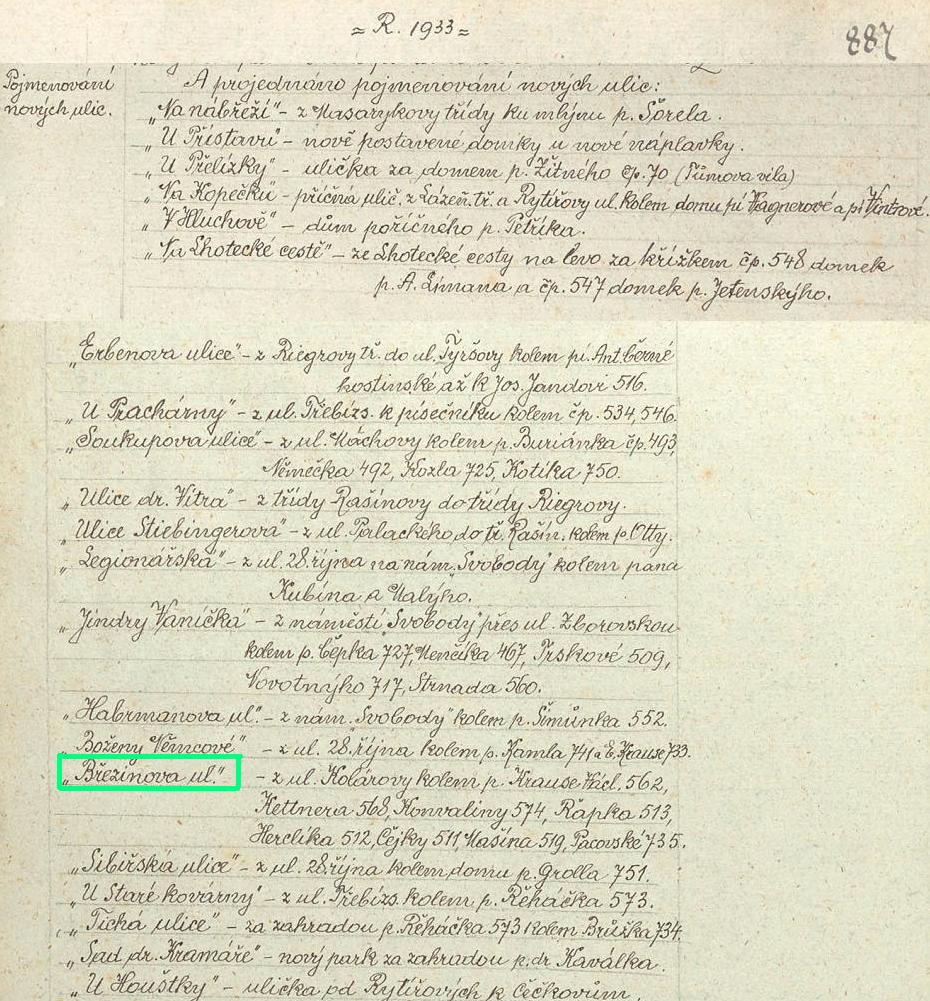 ≈ R. 1933 ≈
887
Pojmenování
nových ulic.
A projednáno pojmenování nových ulic:
„Na nábřeží" – z Masarykovy třídy ku mlýnu p. Šorela.
„U Přístavu" – nově postavené domky u nové náplavky.
„U Přelízky" – ulička za domem p. Žitného čp. 70 (Tůmova vila)
„Na Kopečku" – příčná ulič. z Lázeň. tř. a Rytířovy ul. kolem domu pí Vagnerové a pí Vintrové.
„V Hluchově" – dům poříčného p. Petříka.
„Na Lhotecké cestě" – ze Lhotecké cesty na levo za křížkem čp. 548 domek
p. A. Limana a čp. 547 domek p. Jetenskýho.
„Erbenova ulice" – z Riegrovy tř. do ul. Tyršovy kolem pí. Ant. Černé
hostinské, až k Jos. Jandovi 516.
„U Prachárny" – z ul. Třebízs. k písečníku kolem čp. 534, 546.
„Soukupova ulice" – z ul. Máchovy kolem p. Buriánka čp. 493,
Němečka 492, Kozla 725, Kotika 750.
„Ulice dr. Vitra" – z třídy Rašínovy do třídy Riegrovy.
„Ulice Stiebingerova" – z ul. Palackého do tř. Rašín. kolem p. Otty.
„Legionářská" – z ul. 28. října na nám. „Svobody" kolem pana
Kubína a Malýho.
„Jindry Vaníčka" – z náměstí „Svobody" přes ul. Zborovskou
kolem p. Čepka 727, Menčíka 467, Trskové 509,
Novotnýho 717, Strnada 560.
„Habrmanova ul." – z nám. „Svobody" kolem p. Šimůnka 552.
„Boženy Němcové" – z ul. 28. října kolem p. Kamla 741 a E. Krause 733.
„Březinova ul." – z ul. Kolárovy kolem p. Krause Václ. 562,
Kettnera 568, Konvaliny 574, Řapka 513,
Herclíka 512, Čejky 511, Mašína 519, Pacovské 735.
„Sibiřská ulice" – z ul. 28. října kolem domu p. Grolla 751.
„U Staré kovárny" – z ul. Třebízs. kolem p. Řeháčka 573.
„Tichá ulice" – za zahradou p. Řeháčka 573 kolem Brůžka 734.
„Sad dr. Kramáře" – nový park za zahradou p. dr Kaválka.
„U Houštky" – ulička od Rytířových k Čečkovům,